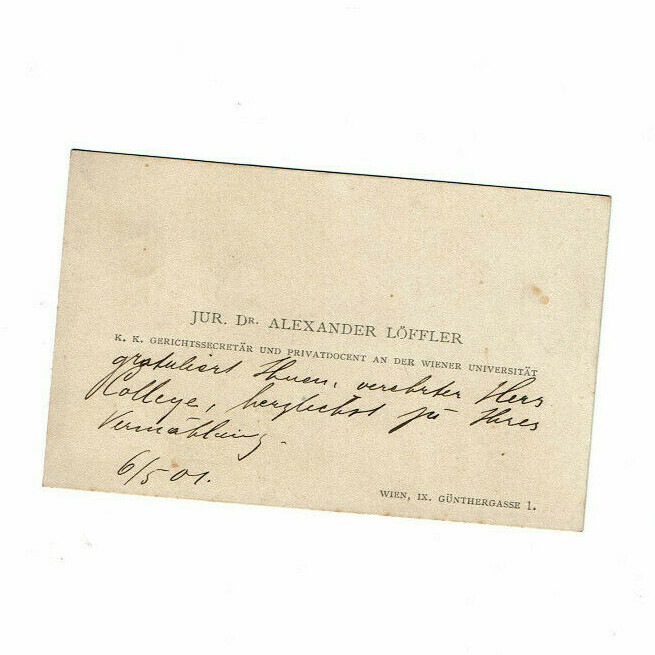 JUR. DR. ALEXANDER LÖFFLER
K. K. GERICHTSSECRETÄR UND PRIVATDOCENT AN DER WIENER UNIVERSITÄT
gratuliert Ihnen, verehrter Herr
College, herzlichst zu Ihrer
Vermählung.
6/5 01.
WIEN, IX. GÜNTHERGASSE 1.